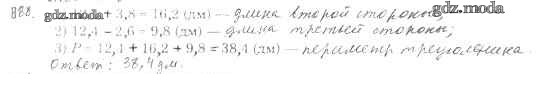 888. gdz.moda + 3,8 = 16,2 (дм) — длина второй стороны; gdz.moda
2) 12,4 - 2,6 = 9,8 (дм) — длина третьей стороны;
3) P = 12,4 + 16,2 + 9,8 = 38,4 (дм) — периметр треуголника.
Ответ: 38,4 дм.